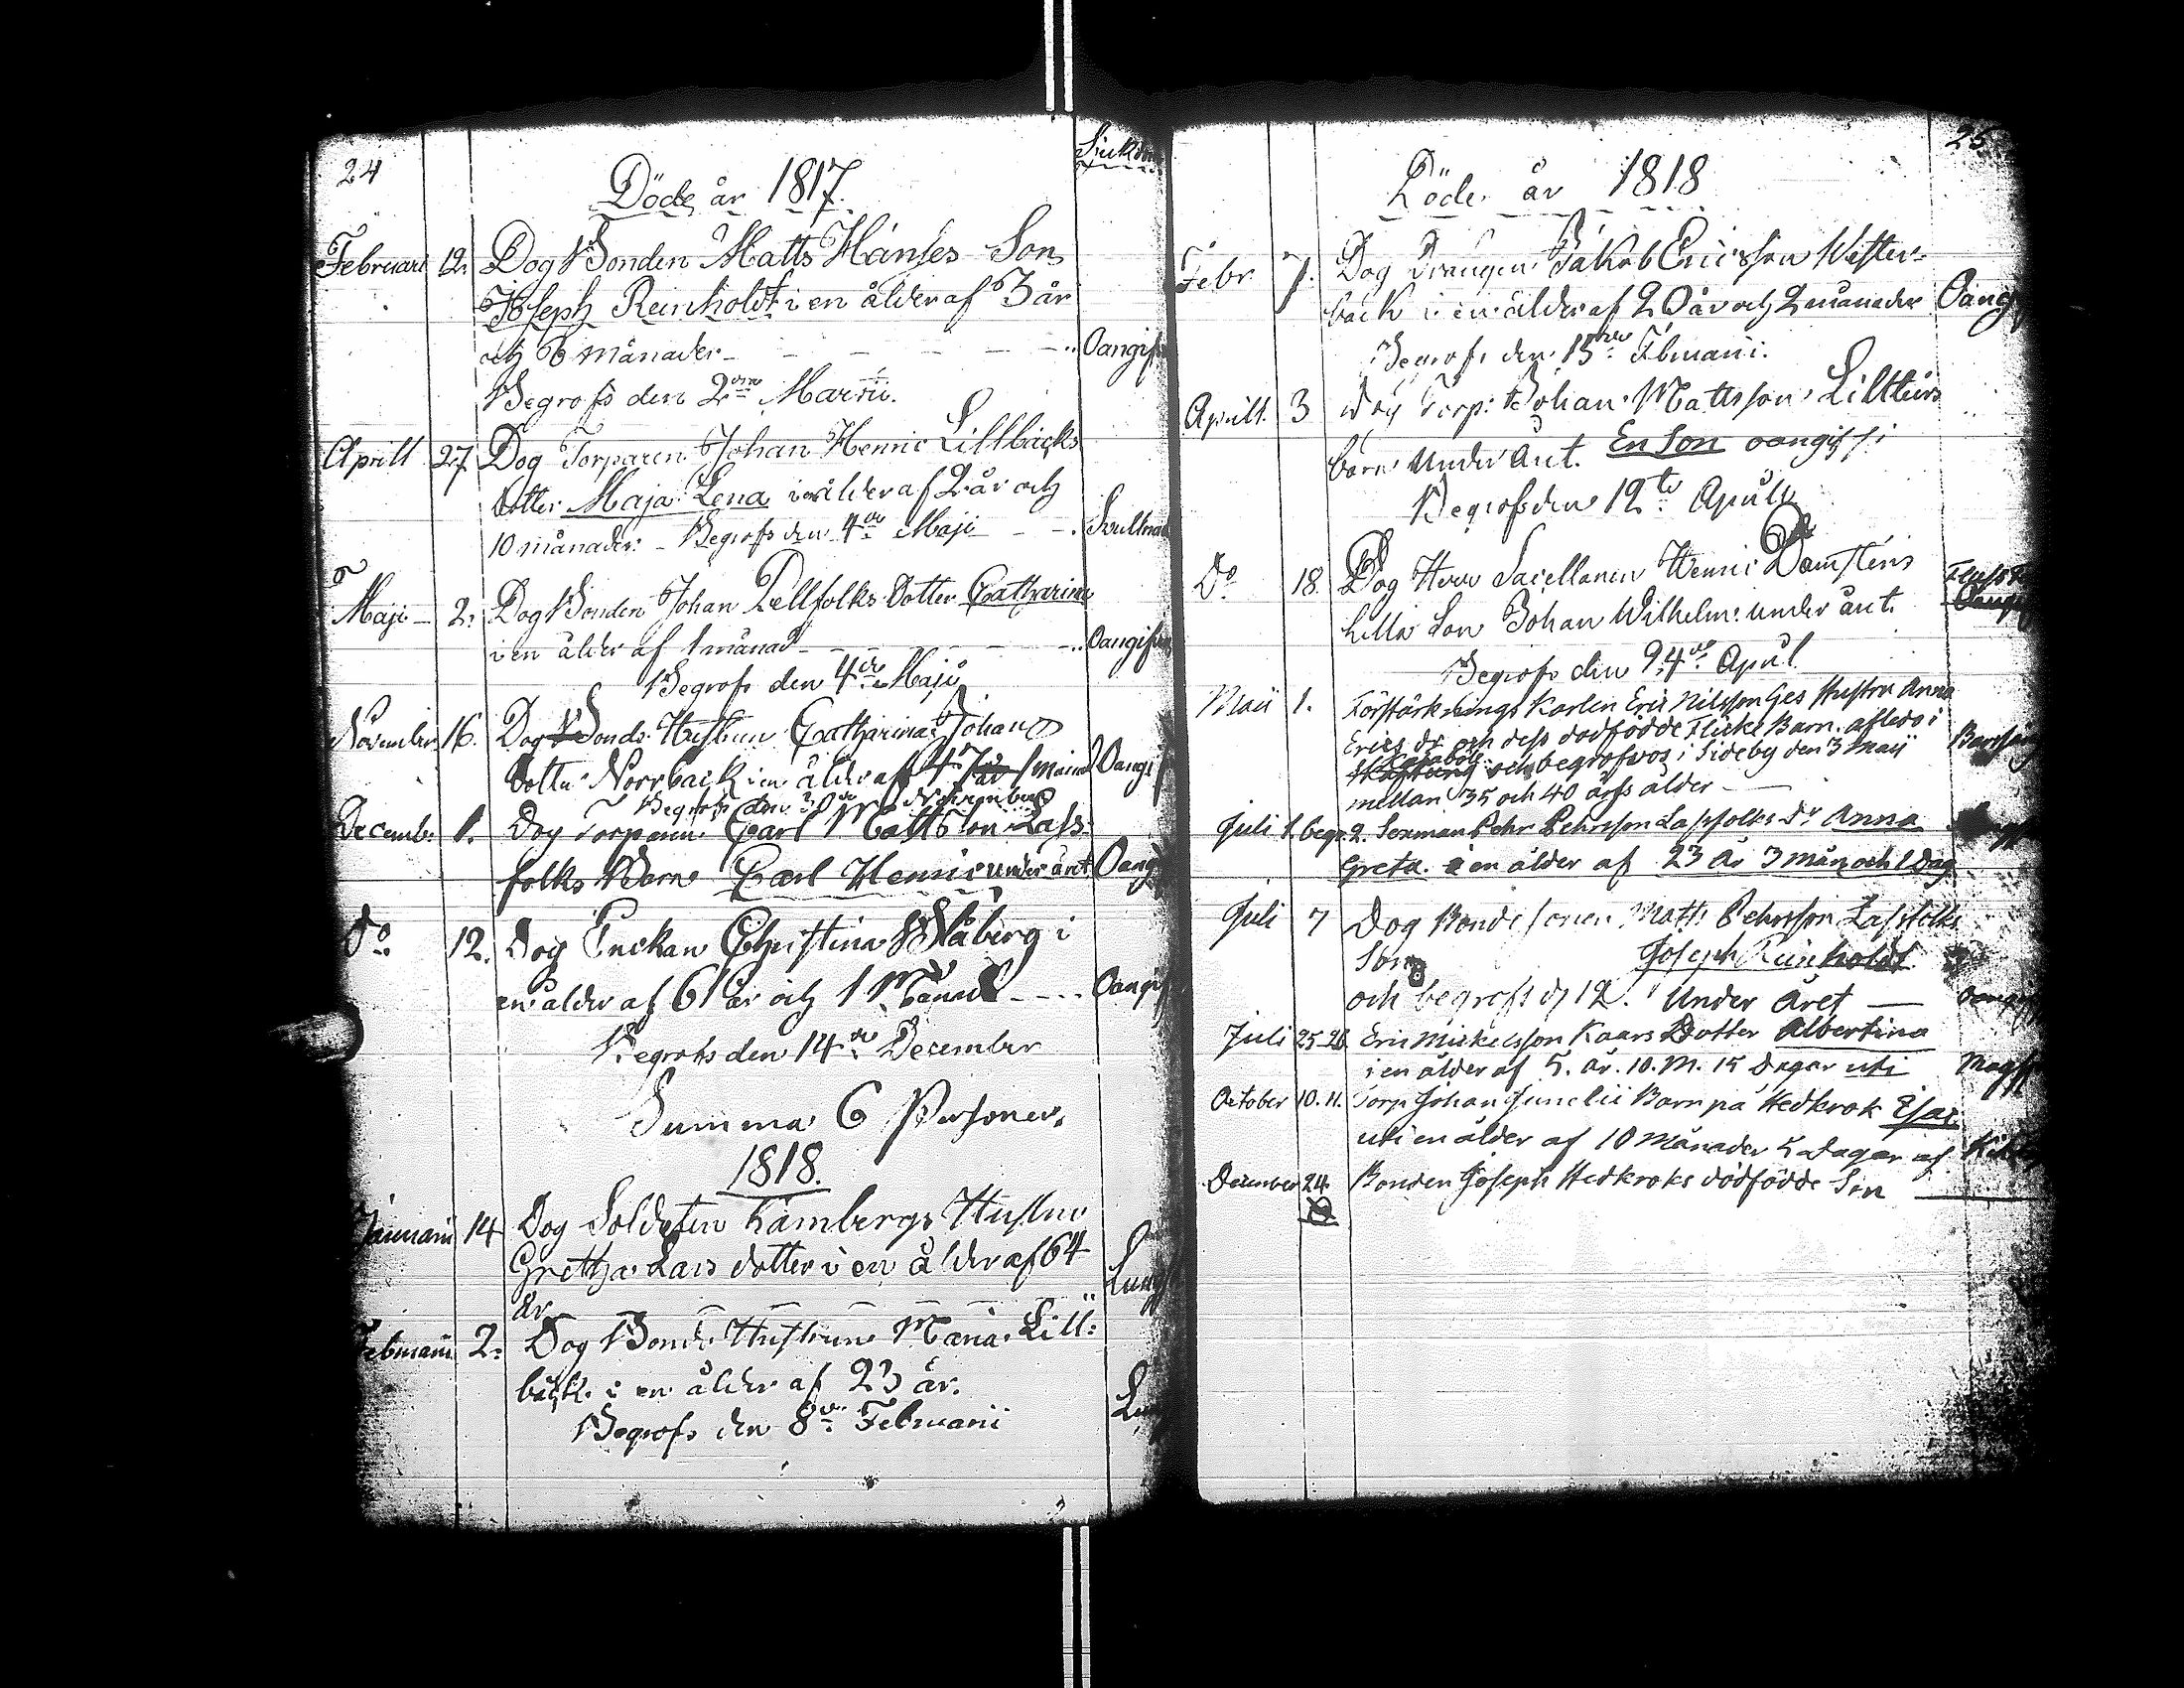 24
Siukdo
Döde år 1817.
Februari 12. Dog Bonden Matts Hanses Son
Joseph Reinholdt i en ålder af 3 år
och 6 månader - - - Oangif
Begrofs den 2dra Martii.
Aprill 27. Dog Torparen Johan Henric Lillbäcks
dotter Maja Lena i en ålder af 2 år och
10 månader. - Begrofs den 4de Maji - -
Maji - 2. Dog Bonden Johan Dellfolks dotter Catharina
i en ålder af 1 månad - - - Oangifven
Begrofs den 4de Maji
November 16. Dog Bonde Hustrun Catharina Johans
dotter Norrback i en ålder af 47 år 1 månad Oangif
Begrofs den 30de November
Decemb: 1. Dog Torparen Carl Mattsson Lass-
folks Barn Carl Henric under året Oang
Do 12. Dog Enckan Christina Blåberg i
en ålder af 61 år och 1 Månad - - - Oangif
Begrofs den 14de December
Summa 6 Personer.
1818.
Januarii 14 Dog Soldaten Kämbergs Hustru
Gretha Lars dotter i en ålder af 64
år - - - Lung
Februarii 2. Dog Bonde Hustrun Maria Lill-
bäck i en ålder af 23 år.
Begrofs den 8de Februarii
25
Döde år 1818
Febr 7. Dog Drängen Jakob Ericsson Wester-
back i en ålder af 20 år och 2 månader Oangif
Begrofs den 15de Februarii.
Aprill 3 Dog Torp: Johan Mattsson
barn under året. En Son oangifs:
Begrofs den 12te Aprill
Do 18. Dog Herr Sacellanen Henric Damsténs
lilla Son Johan Wilhelm under året
Begrofs den 24de April
Maii 1. Förstärknings Karlen Eric Nilsson Ges Hustru Anna
Erics dr och dess dödfödde Flicke Barn afledo i
och begrofvos i Sideby den 3 Maij
mellan 35 och 40 års ålder -
Juli 1. begr. 2. Sexman Pehr Pehrsson Lassfolks Dr Anna
Greta i en ålder af 23 år 3 mån och 1 Dag
Juli 7 Dog Bonde sonen Matts Pehrsson Lassfolks
Son Joseph Reinholdt
och begrofs d 12. Under Året - Oangif
Juli 25-26 Eric Mickelsson Kaars Dotter Albertina
i en ålder af 5. år. 10. M. 15 Dagar uti Magf
October 10. 11. Torp Johan Junelii Barn på Hedkrok Esai
uti en ålder af 10 Månader 5 Dagar af
December 24. Bonden Joseph Hedkroks dödfödde Son